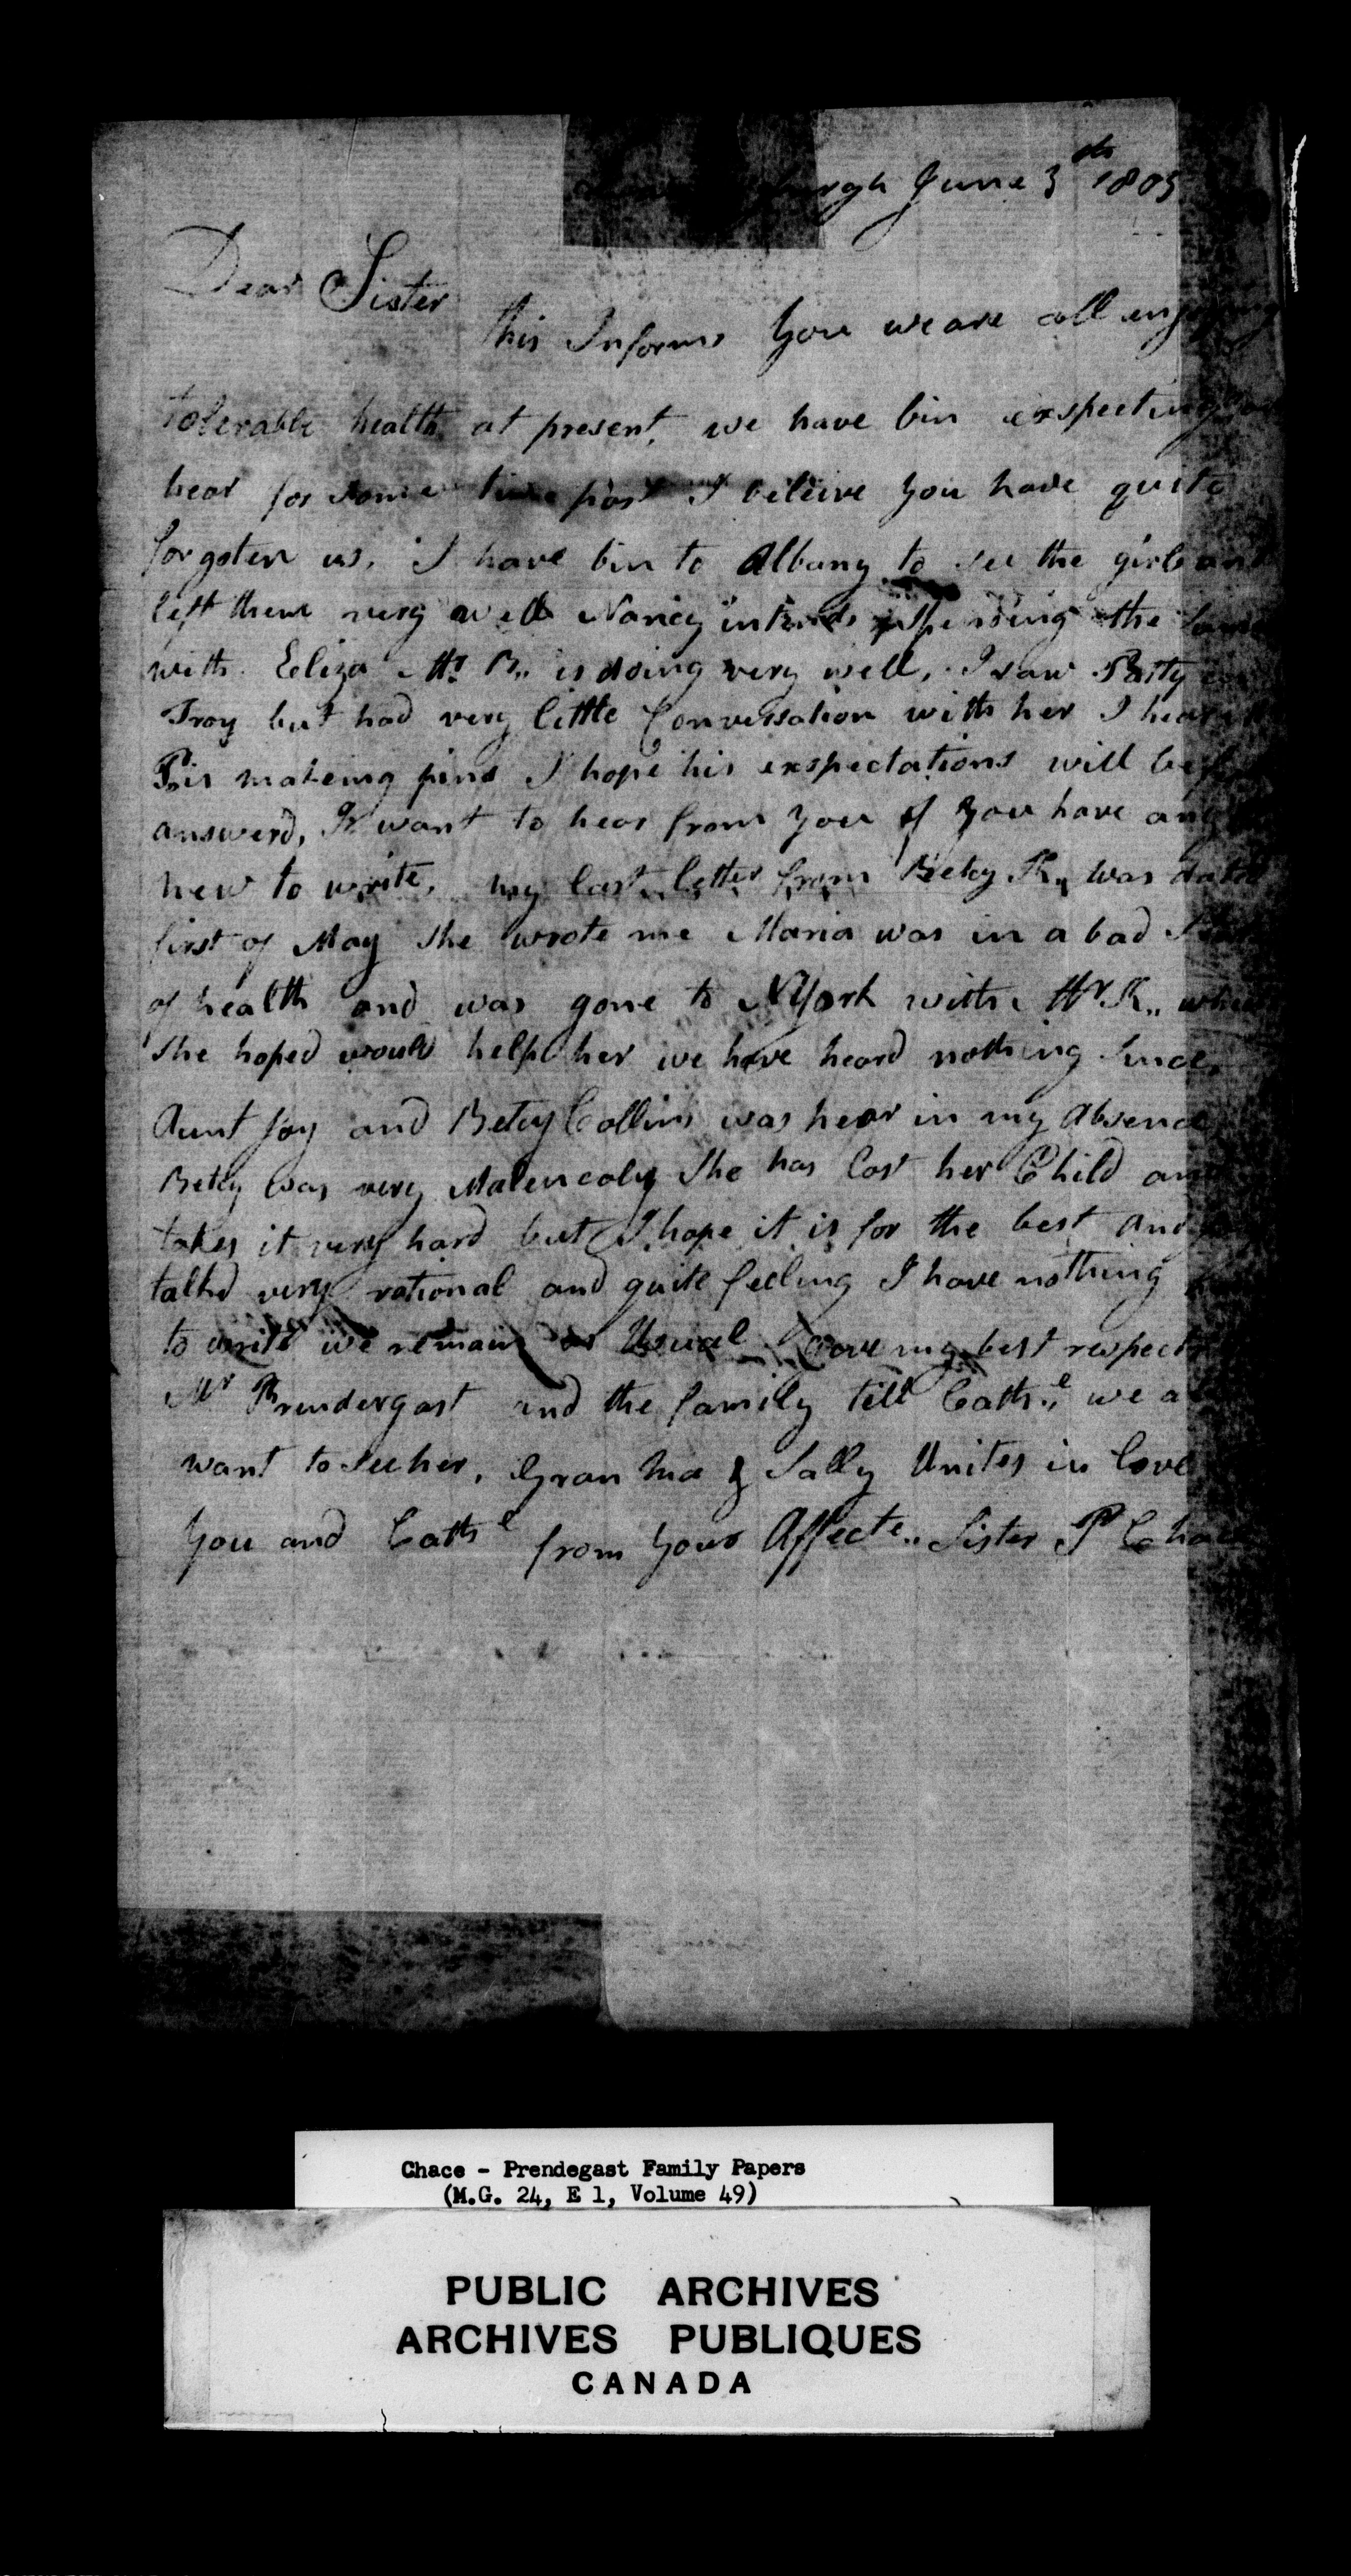 June 3th 1805
Dear Sister
this Informs you we are all
tolerable health at present, we have bin exspecting you
hear for some time past I beleive you have quite
forgoten us, I have bin to Albany to see the girls and
left them very well Nancy intends spending the
with Eeliza Mr B,, is doing very well, I saw Patty
Troy but had very little Conversation with her I hear
P is makeing pins I hope his exspectations will be
answerd, I want to hear from you if you have any
new to write, my last letter from Betcy K,, was dated
first of May She wrote me Maria was in a bad
of health and was gone to N York with Mr K,,
She hoped would help her we have heard nothing Since,
Aunt Joy and Betcy Collins was hear in my Absence
Betcy was very Malencoly She has lost her Child and
takes it very hard but I hope it is for the best and
talkd very rational and quite feeling I have nothing
to write we remain as Usual my best respects
Mr Prendergast and the family tell Cathe we
want to See her, Gran Ma & Sally Unites in love
you and Cathe from your Affecte,, Sister P Chace
Chace - Prendegast Family Papers
(M.G. 24, E 1, Volume 49)
PUBLIC ARCHIVES
ARCHIVES PUBLIQUES
CANADA